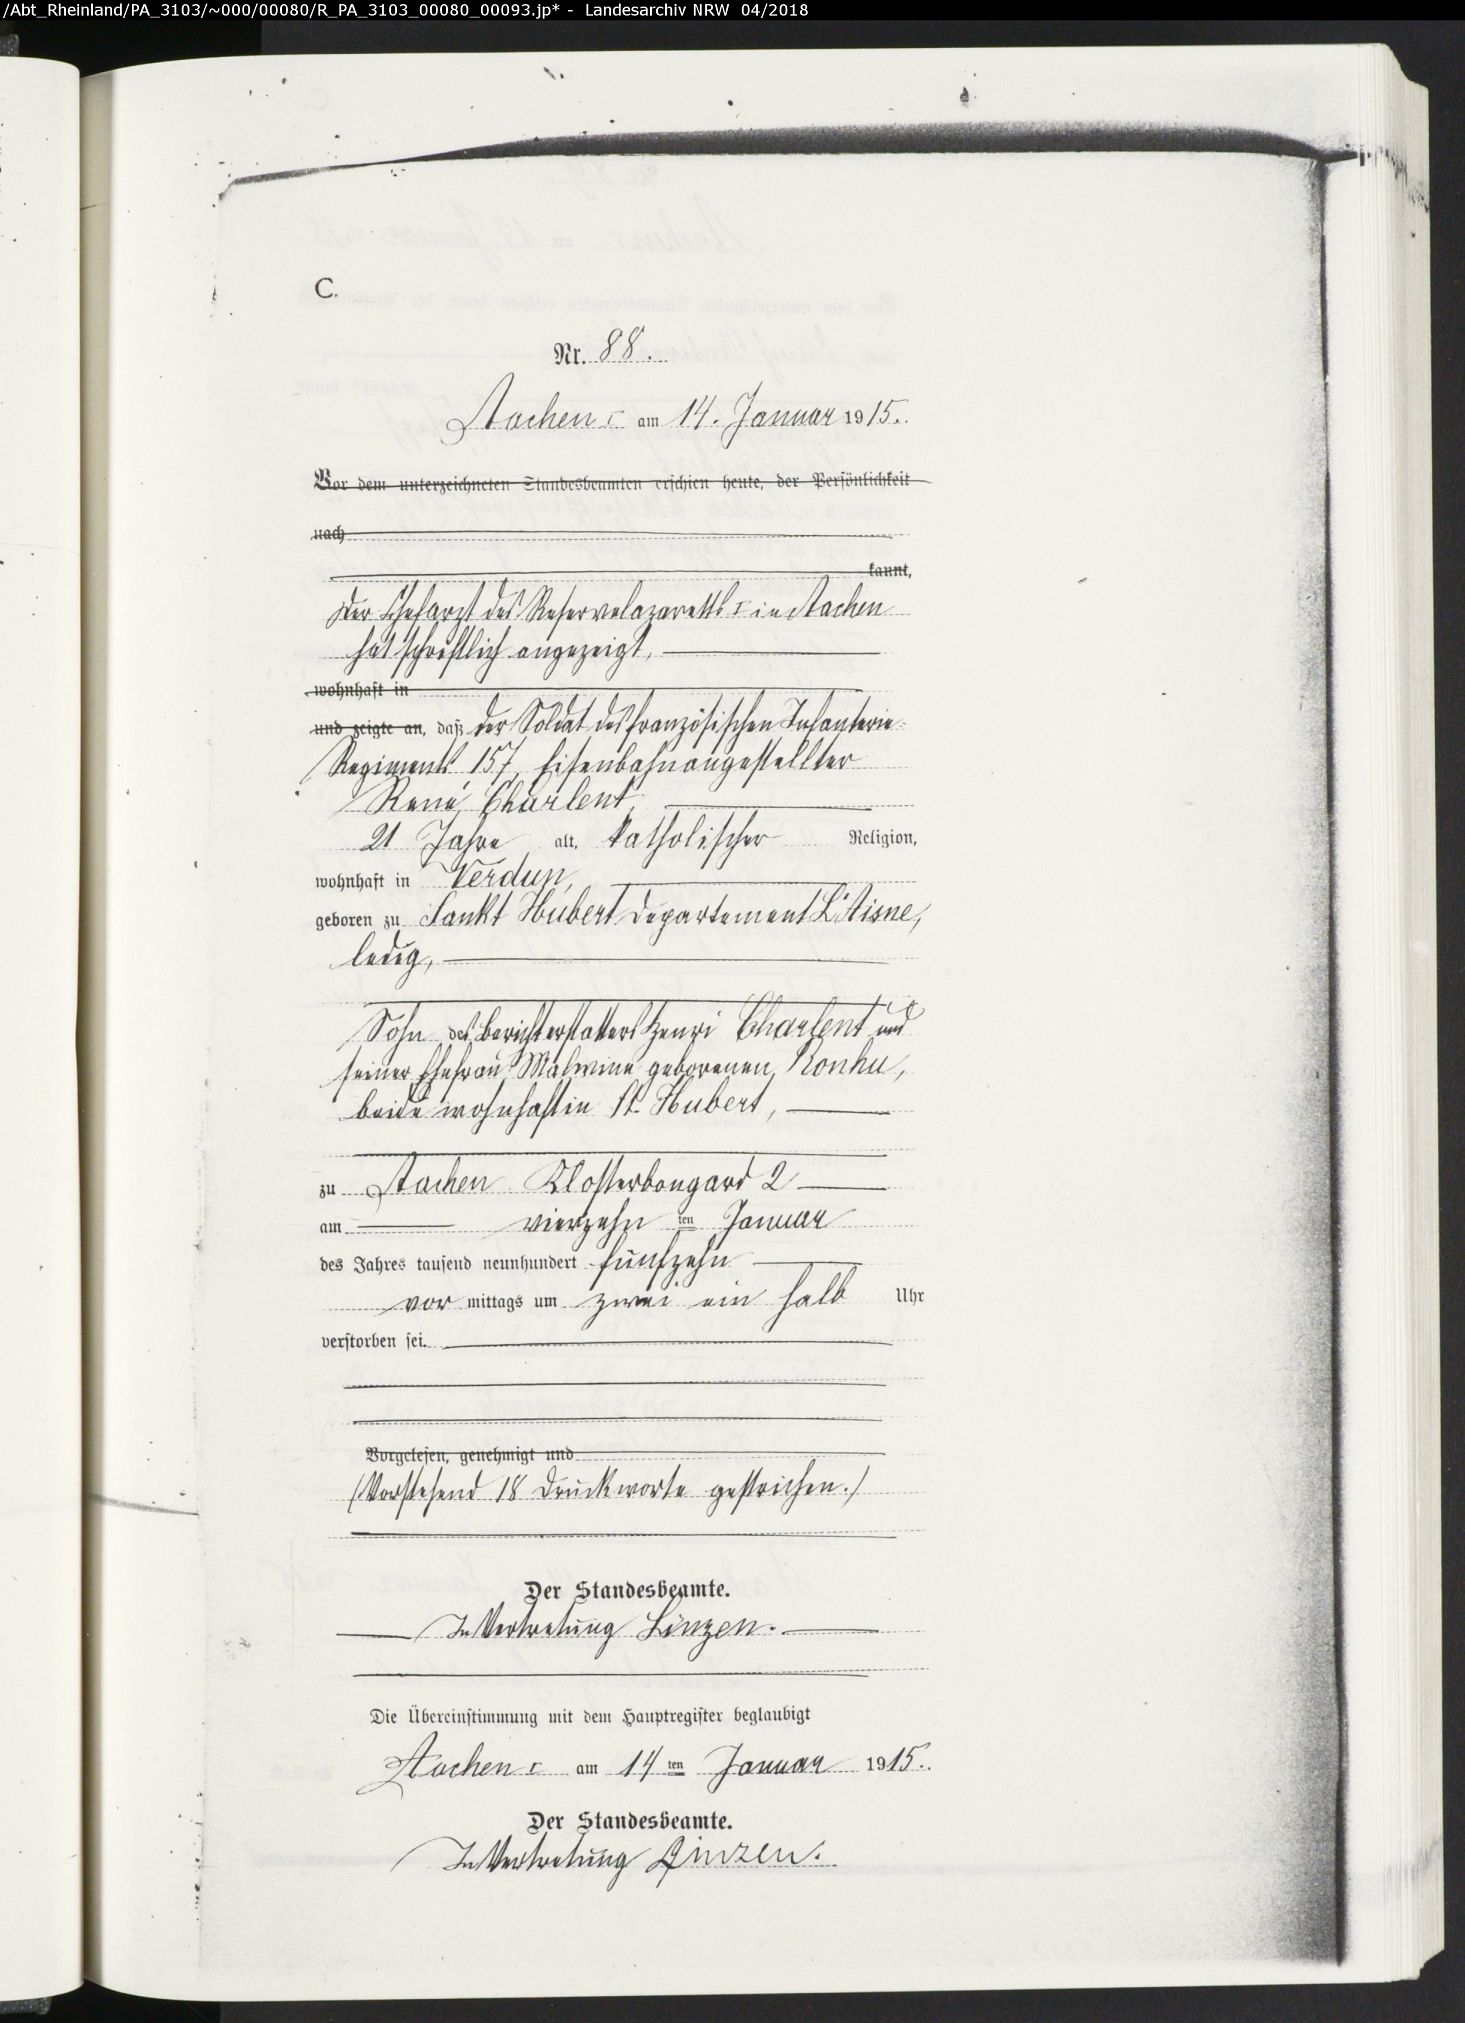 /Abt_Rheinland/PA_3103/~000/00080/R_PA_3103_00080_00093.jp* - Landesarchiv NRW 04/2018
C.
Nr. 88.
Aachen I am 14. Januar 1915.
Vor dem unterzeichneten Standesbeamten erschien heute, der Persönlichkeit
nach
kannt,
Der Chefarzt des Reservelazaretts I in Aachen
hat schriftlich angezeigt,
wohnhaft in
und zeigte an, daß der Soldat des französischen Infanterie-
Regiments 157, Eisenbahnangestellter
René Charlent,
21 Jahre alt, katholischer Religion,
wohnhaft in Verdun,
geboren zu Sankt Hubert Departement L'Aisne,
ledig,
Sohn des Berichterstatters Henri Charlent und
seiner Ehefrau Malwine geborenen Ronhu,
beide wohnhaft in St. Hubert,
zu Aachen Klosterbongard 2
am vierzehn ten Januar
des Jahres tausend neunhundert fünfzehn
vor mittags um zwei ein halb Uhr
verstorben sei.
Vorgelesen, genehmigt und
(Vorstehend 18 Druckworte gestrichen.)
Der Standesbeamte.
In Vertretung Linzen.
Die Übereinstimmung mit dem Hauptregister beglaubigt
Aachen I am 14 ten Januar 1915.
Der Standesbeamte.
In Vertretung Linzen.